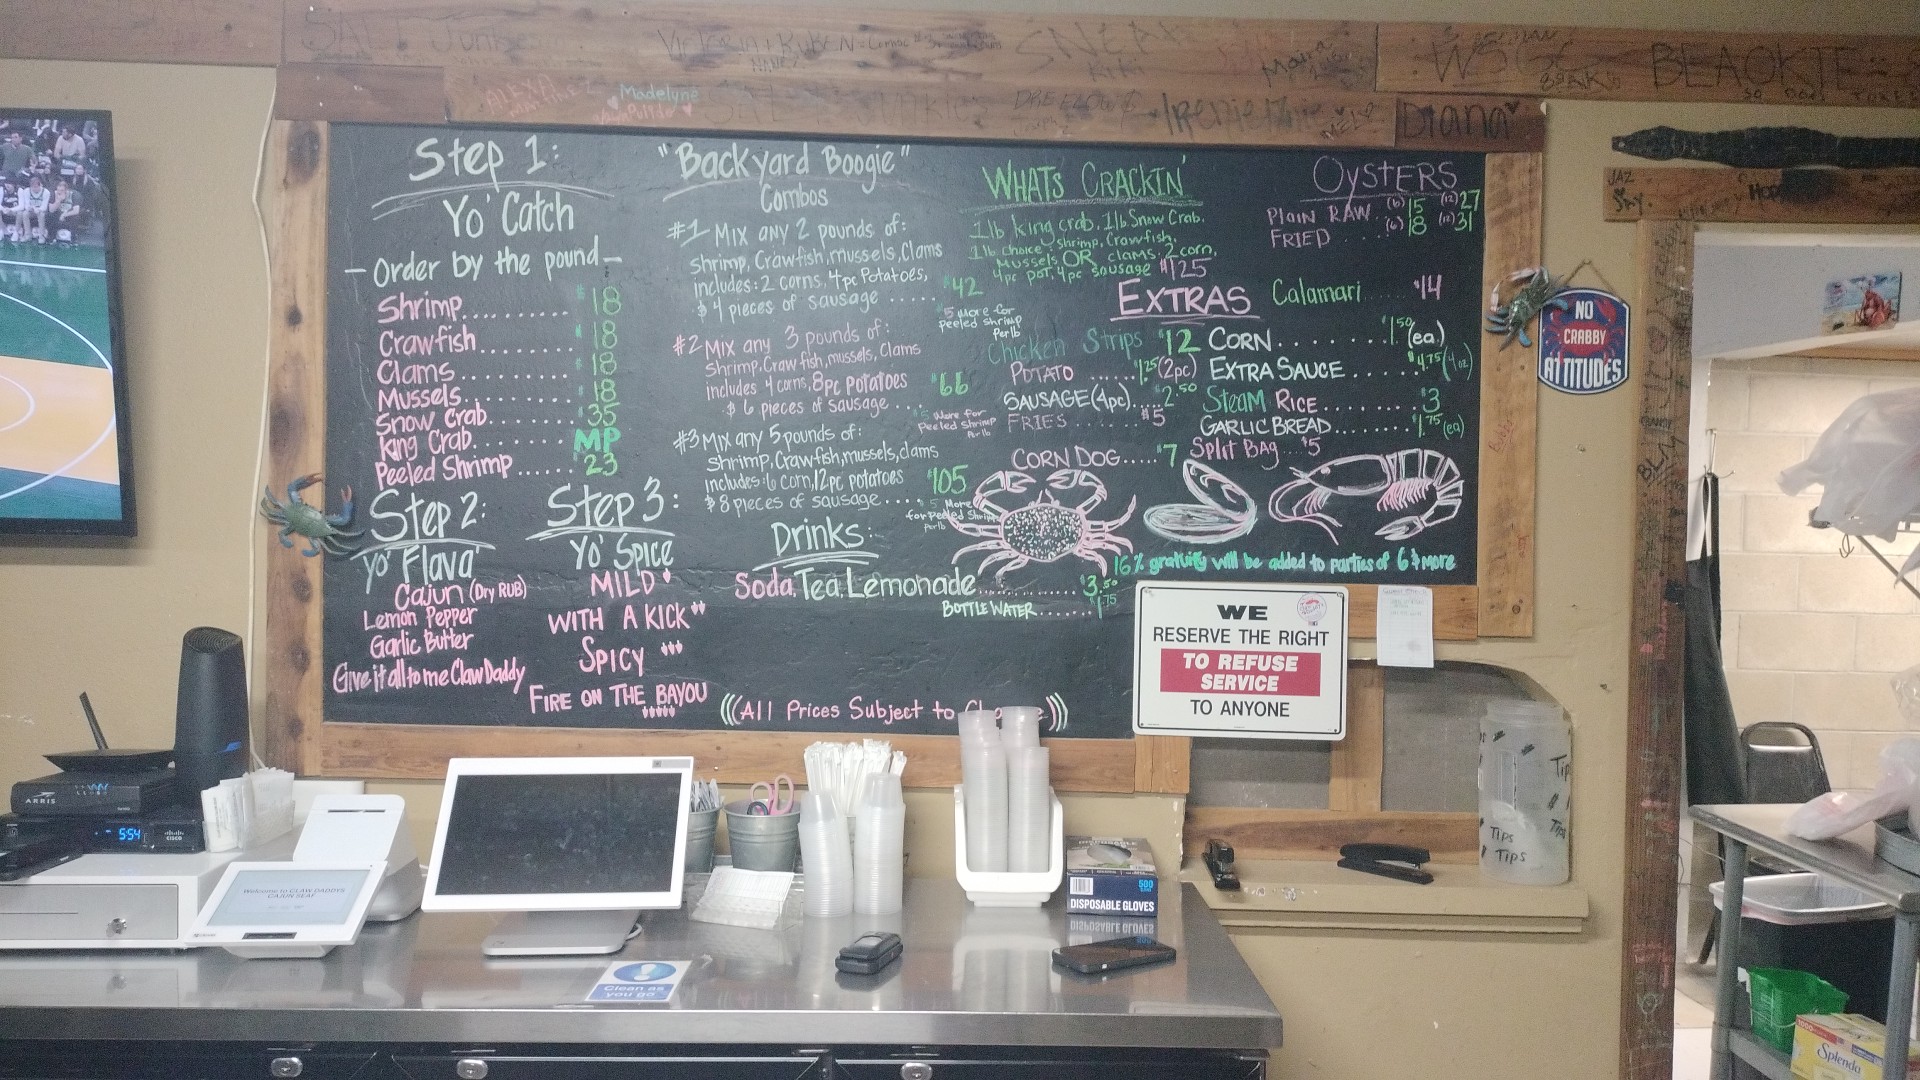 Victoria + RUBEN
ALEXA
Madelyne
Maira
Diana
BLACKIE
JAZ
Step 1:
Yo' Catch
- Order by the pound -
Shrimp.......... $18
Crawfish......... $18
Clams............ $18
Mussels.......... $18
Snow Crab........ $35
King Crab........ MP
Peeled Shrimp...... $23
Step 2:
Yo' Flava'
Cajun (Dry RUB)
Lemon Pepper
Garlic Butter
Give it all to me Claw Daddy
Step 3:
Yo' Spice
MILD
WITH A KICK
SPICY
FIRE ON THE BAYOU
"Backyard Boogie"
Combos
#1 Mix any 2 pounds of:
shrimp, Crawfish, mussels, Clams
includes: 2 corns, 4pc Potatoes,
& 4 pieces of sausage ..... $42
$5 more for
peeled shrimp
per lb
#2 Mix any 3 pounds of:
shrimp, Crawfish, mussels, Clams
includes 4 corns, 8pc potatoes
& 6 pieces of sausage.... $66
$5 More for
Peeled Shrimp
Per lb
#3 Mix any 5 pounds of:
shrimp, Crawfish, mussels, clams
includes: 6 corn, 12pc potatoes
& 8 pieces of sausage.... $105
$5 More
for Peeled Shrimp
Per lb
Drinks:
Soda, Tea, Lemonade............ $3.50
BOTTLE WATER....... $1.75
((All Prices Subject to
WHATS CRACKIN'
1 lb king crab, 1 lb Snow Crab,
1 lb choice: shrimp, Crawfish,
Mussels OR clams. 2 corn,
4pc pot, 4pc sausage $125
OYSTERS
PlAIN RAW.. (6) 15 (12) 27
FRIED .... (6) 18 (12) 31
EXTRAS
Calamari...... $14
Chicken Strips $12
POTATO ..... $1.25 (2pc)
SAUSAGE (4pc)... $2.50
FRIES ..... $5
CORN DOG..... $7
CORN......... $1.50 (ea)
EXTRA SAUCE..... $4.75 (4oz)
Steam RICE....... $3
GARLIC BREAD....... $1.75 (ea)
Split Bag...$5
16% gratuity will be added to parties of 6 & more
NO
CRABBY
ATTITUDES
WE
RESERVE THE RIGHT
TO REFUSE
SERVICE
TO ANYONE
Tips
Tips
Tips
Tips
ARRIS
5:54
CISCO
Welcome to CLAW DADDYS
CAJUN SEAF
500
DISPOSABLE GLOVES
Clean as
you go
Splenda